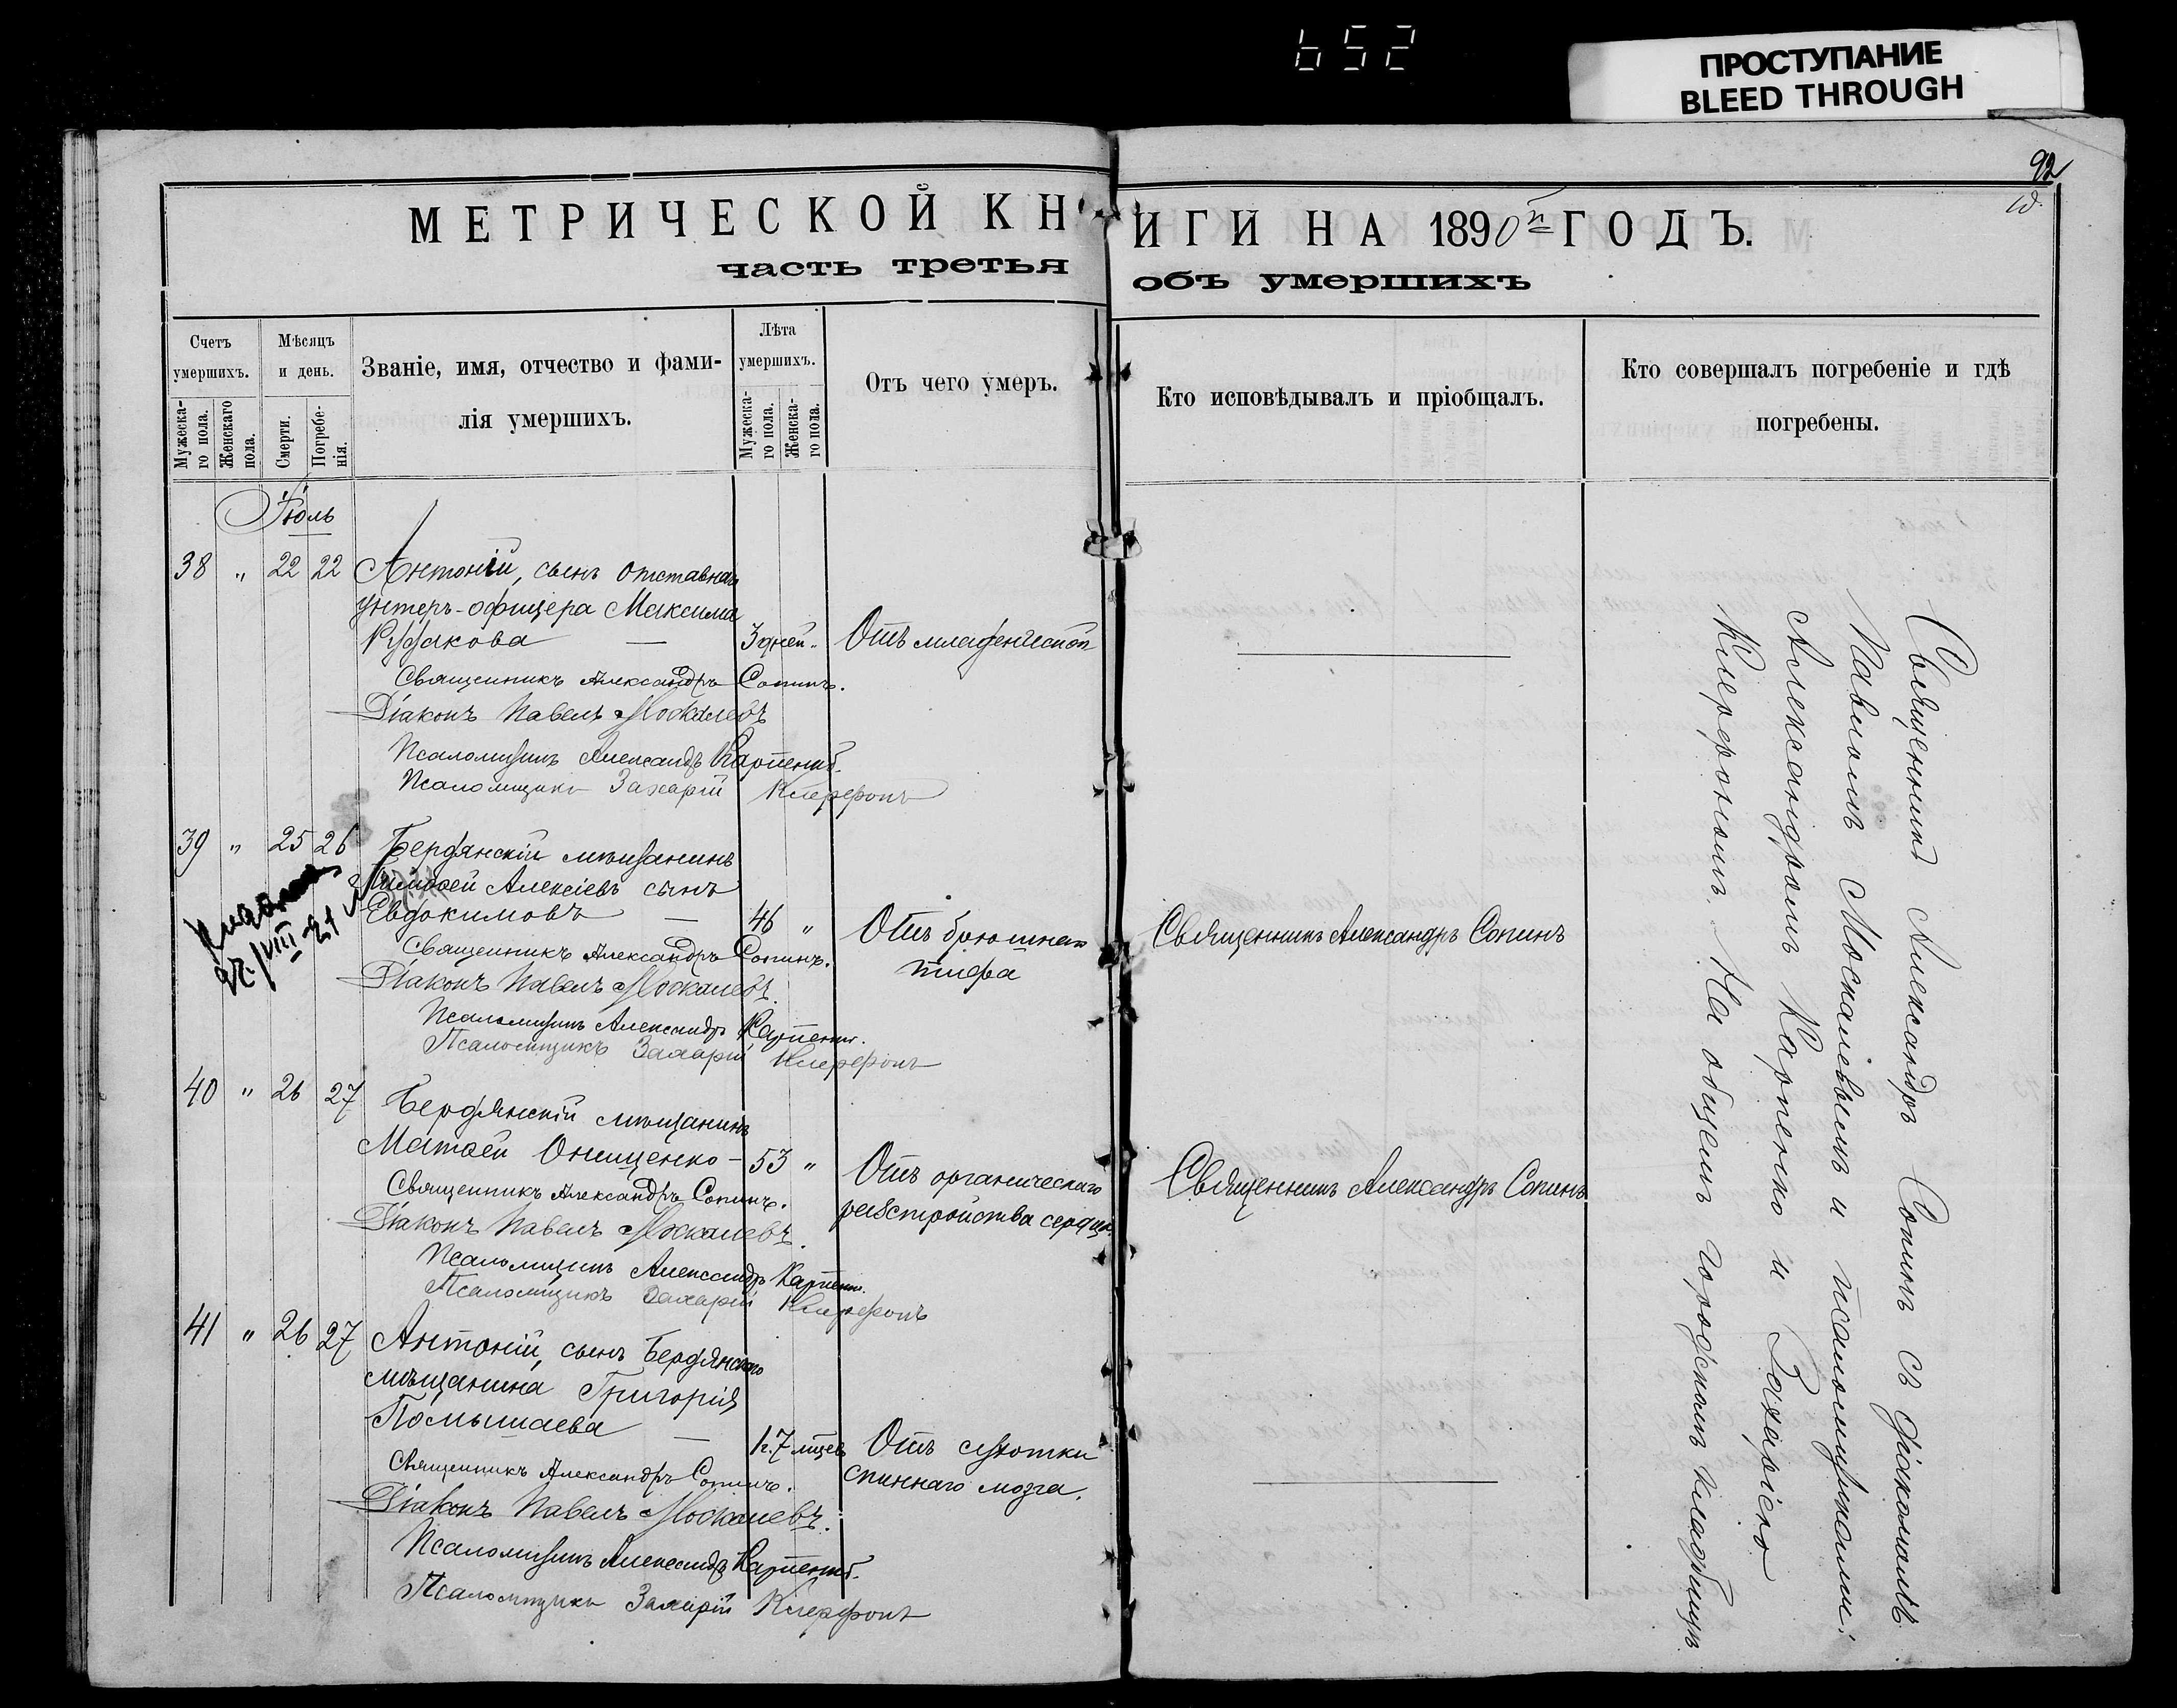 652
ПРОСТУПАНИЕ
BLEED THROUGH
92
МЕТРИЧЕСКОЙ КНИГИ НА 1890й ГОДЪ.
часть третья объ умершихъ
Счетъ умершихъ.
Мѣсяцъ и день.
Званіе, имя, отчество и фами-
лія умершихъ.
Лѣта умершихъ.
Отъ чего умеръ.
Кто исповѣдывалъ и пріобщалъ.
Кто совершалъ погребеніе и гдѣ
погребены.
Мужеска-
го пола.
Женскаго
пола.
Смерти.
Погребе-
нія.
Мужеска-
го пола.
Женска-
го пола.
Іюль
38 " 22 22 Антоній, сынъ отставнаго
унтеръ-офицера Максима
Рудакова — 3 дней " Отъ младенческой
Священникъ Александръ Сопинъ.
Діаконъ Павелъ Москалевъ
Псаломщикъ Александръ Карпенко.
Псаломщикъ Захарій
39 " 25 26 Бердянскій мѣщанинъ
Алексіевъ сынъ
Евдокимовъ — 46 " Отъ брюшнаго
тифа
Священникъ Александръ Сопинъ
Священникъ Александръ Сопинъ.
Діаконъ Павелъ Москалевъ.
Псаломщикъ Александръ Карпенко.
Псаломщикъ Захарій
40 " 26 27 Бердянскій мѣщанинъ
Матѳей Онищенко — 53 " Отъ органическаго
разстройства сердца.
Священникъ Александръ Сопинъ
Священникъ Александръ Сопинъ.
Діаконъ Павелъ Москалевъ.
Псаломщикъ Александръ Карпенко.
Псаломщикъ Захарій
41 " 26 27 Антоній, сынъ Бердянскаго
мѣщанина Григорія
— 1г. 7 мцев Отъ сухотки
спиннаго мозга.
Священникъ Александръ Сопинъ.
Діаконъ Павелъ Москалевъ.
Псаломщикъ Александръ Карпенко.
Псаломщикъ Захарій
Священникъ Александръ Сопинъ съ діакономъ
Павломъ Москалевымъ и псаломщиками:
Александромъ Карпенко и Захаріею
На общемъ городскомъ кладбищѣ